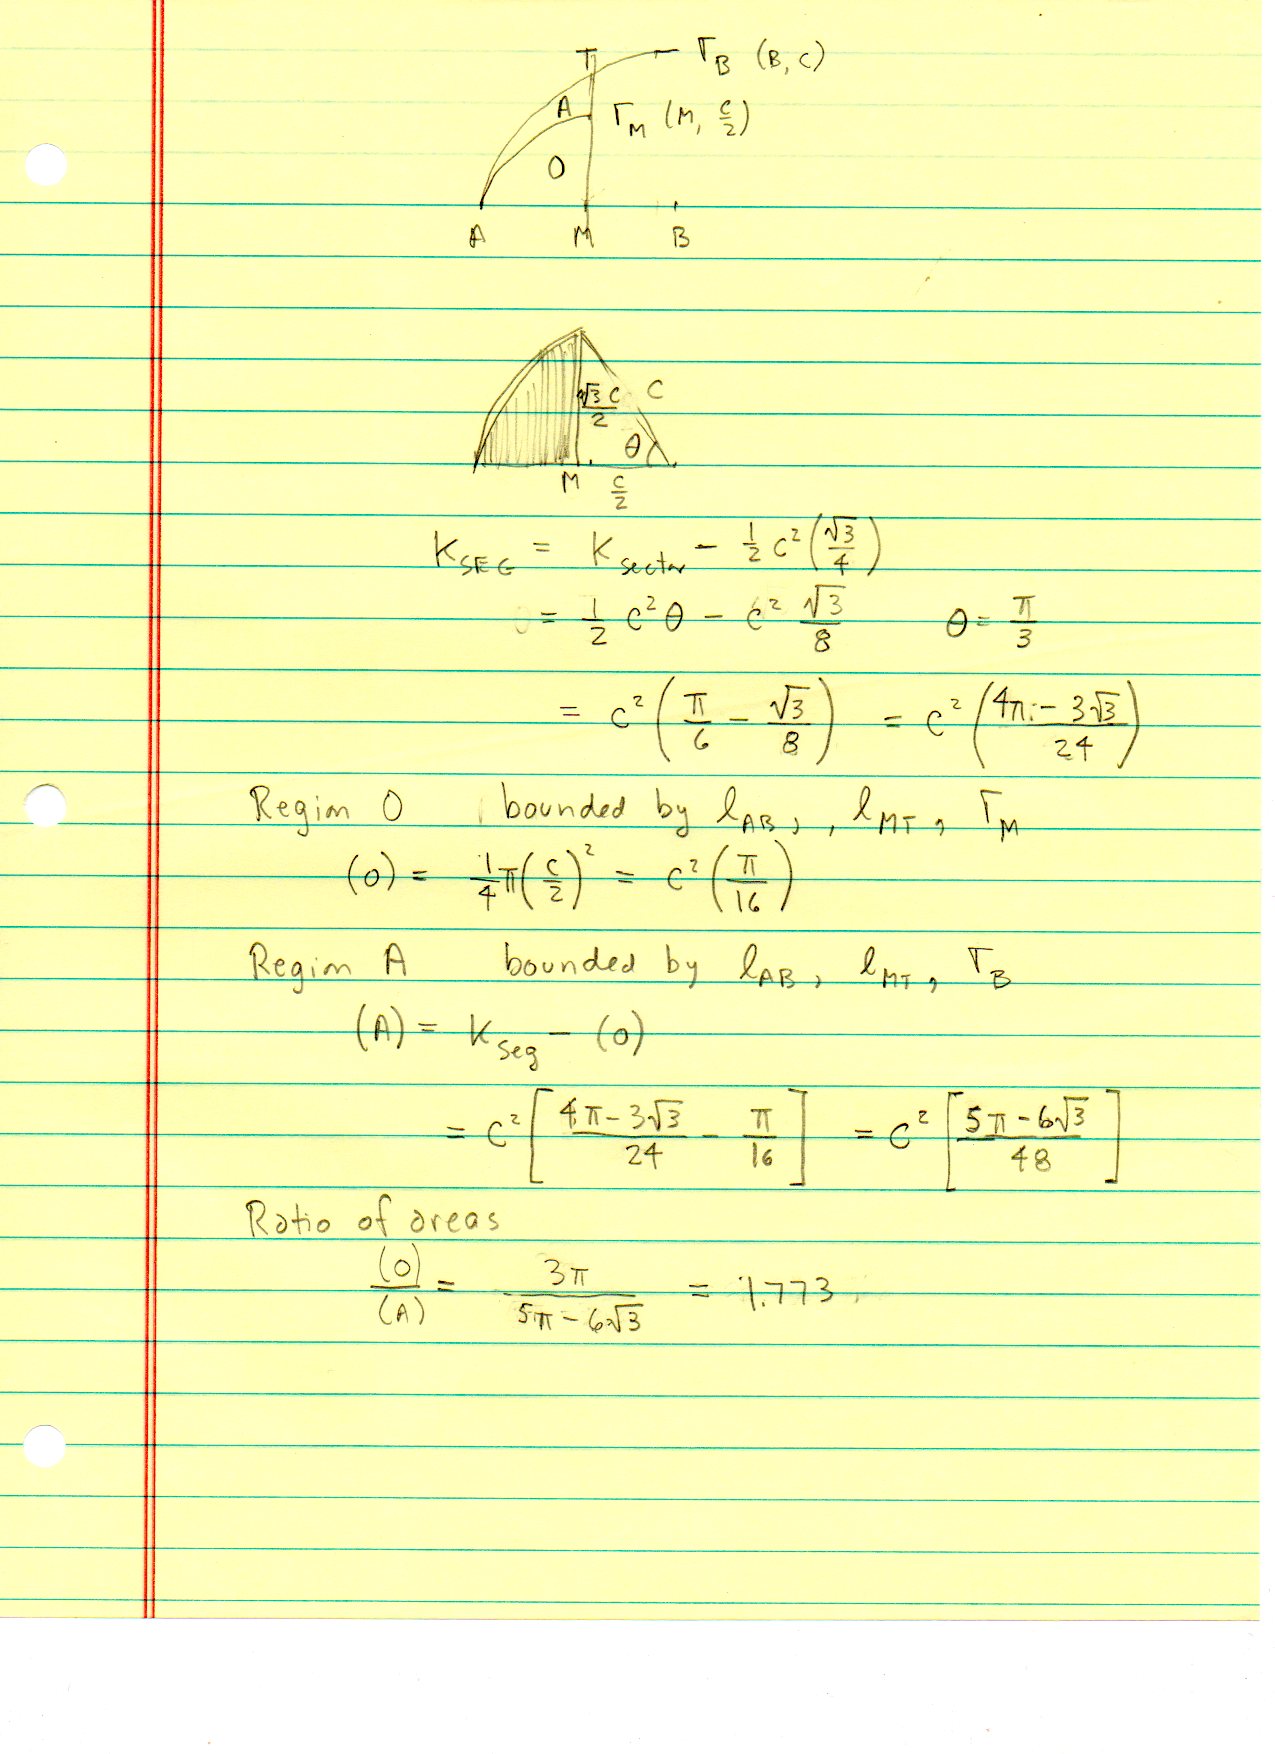 T Γ_B (B, C)
A Γ_M (M, c/2)
O
A M B
√3 c/2 C
θ
M c/2
K_SEG = K_sector - 1/2 c² (√3/4)
= 1/2 c² θ - c² √3/8 θ = π/3
= c² (π/6 - √3/8) = c² (4π - 3√3/24)
Region O bounded by l_AB, , l_MT, Γ_M
(O) = 1/4 π (c/2)² = c² (π/16)
Region A bounded by l_AB, l_MT, Γ_B
(A) = K_seg - (O)
= c² [4π - 3√3/24 - π/16] = c² [5π - 6√3/48]
Ratio of areas
(O)/(A) = 3π/5π - 6√3 = 1.773